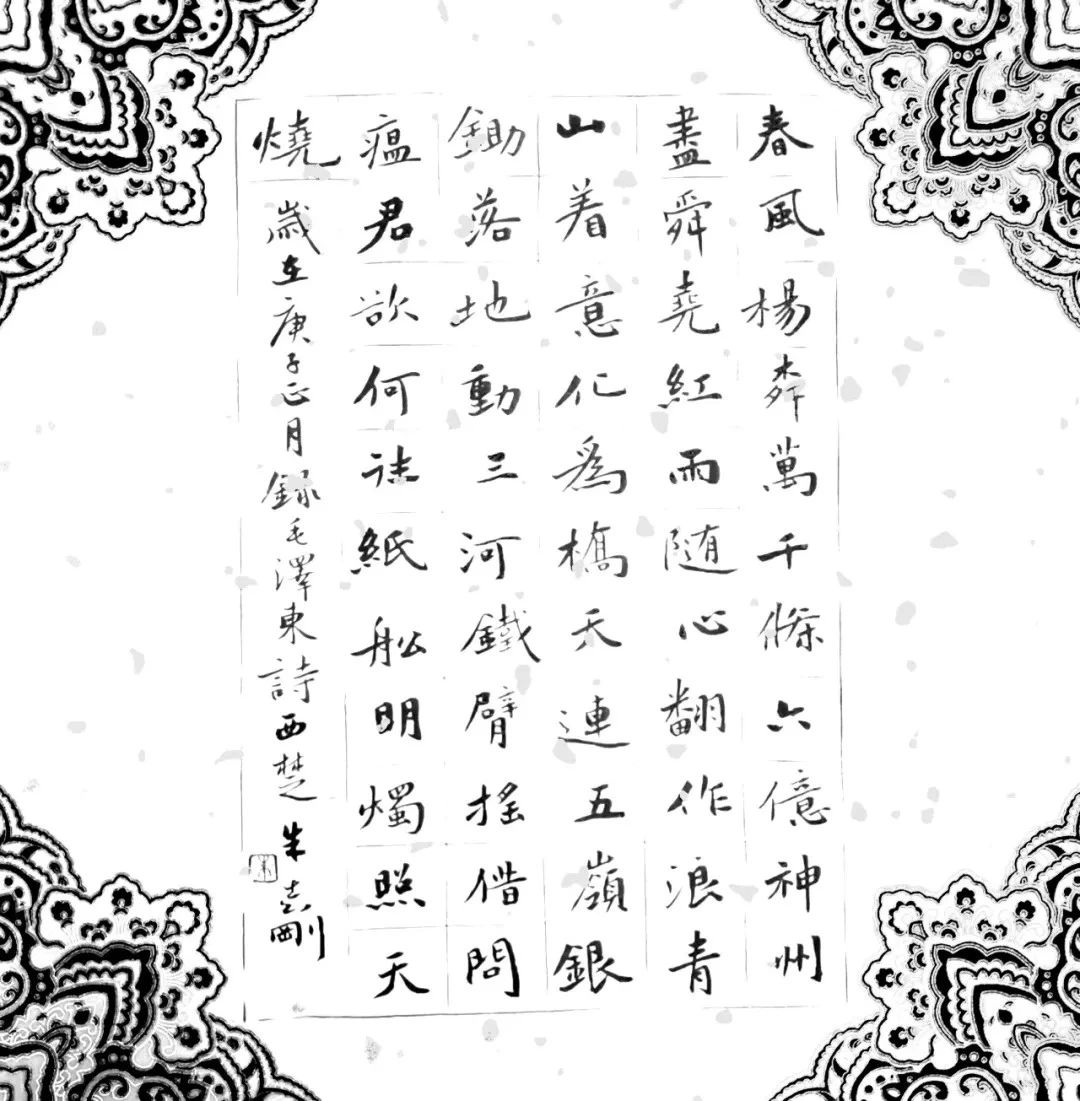 春風楊柳萬千條六億神州
盡舜堯紅雨随心翻作浪青
山着意化為橋天連五嶺銀
鋤落地動三河鐵臂搖借問
瘟君欲何往紙船明燭照天
燒 歲在庚子正月録毛澤東詩西楚朱志剛
朱